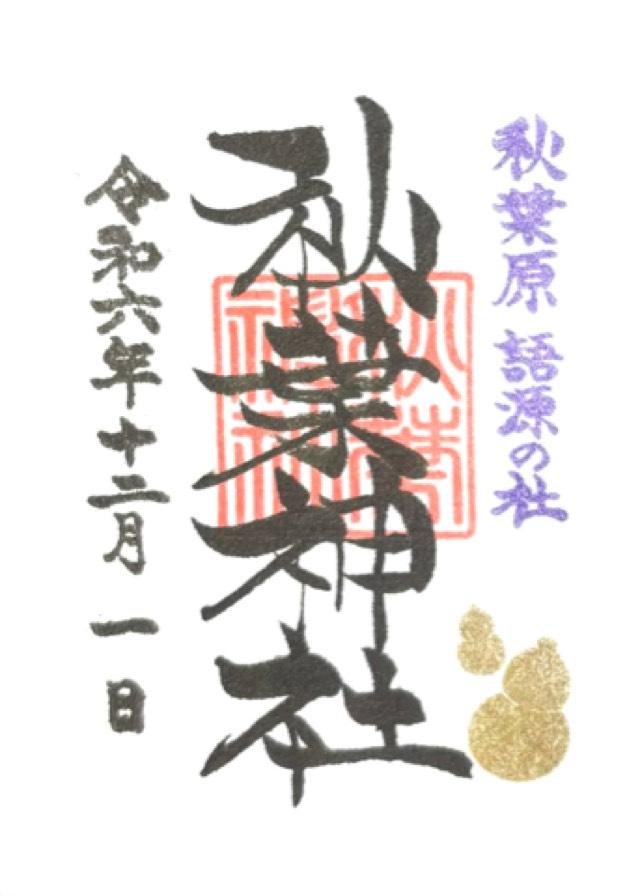 秋葉原 語源の社
秋葉神社
秋葉神社
令和六年十二月一日